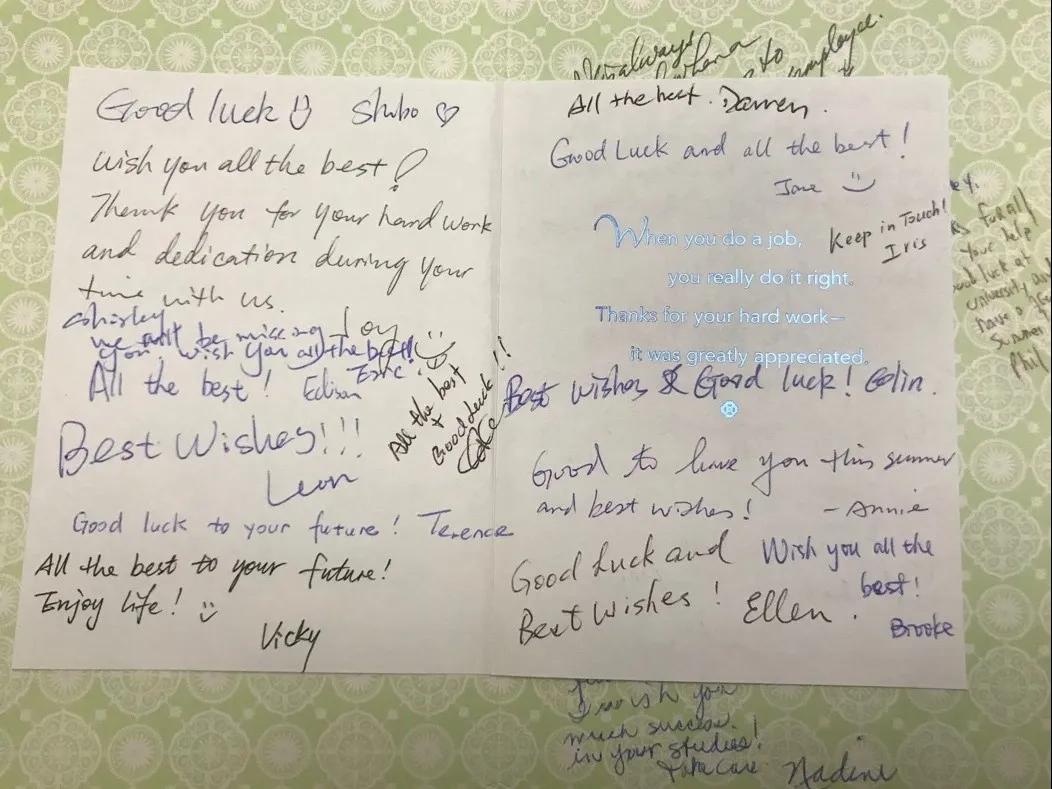 Good luck Shibo
Wish you all the best!
Thank you for your hard work
and dedication during your
time with us.
Joy
Shirley
we will be missing
you, wish you all the best!
Eric
All the best! Edison
All the best
+
Good Luck!!
Best Wishes!!!
Leon
Good luck to your future! Terence
All the best to your future!
Enjoy life!
Vicky
always
to
employee.
All the best. Darren.
Good Luck and all the best!
Jane
Keep in Touch!
Iris
When you do a job,
you really do it right.
Thanks for your hard work—
it was greatly appreciated.
Best wishes & Good luck! Colin.
Good to have you this summer
and best wishes!
- Annie
Good Luck and
Best Wishes!
Ellen.
Wish you all the
best!
Brooke
for all
your help
luck at
university and
have a
summer
Phil
I wish you
much success
in your studies!
Take Care
Nadine